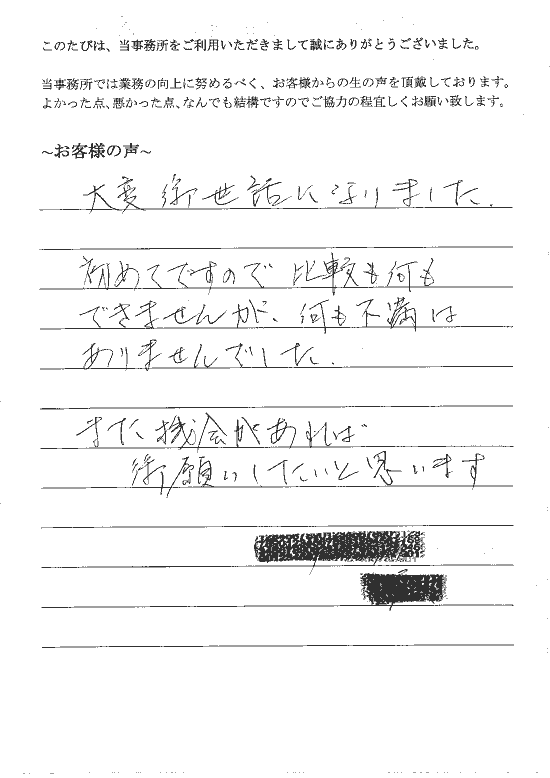 このたびは、当事務所をご利用いただきまして誠にありがとうございました。
当事務所では業務の向上に努めるべく、お客様からの生の声を頂戴しております。
よかった点、悪かった点、なんでも結構ですのでご協力の程宜しくお願い致します。
~お客様の声~
大変御世話になりました.
初めてですので比較も何も
できませんが、何も不満は
ありませんでした.
また機会があれば
御願いしたいと思います